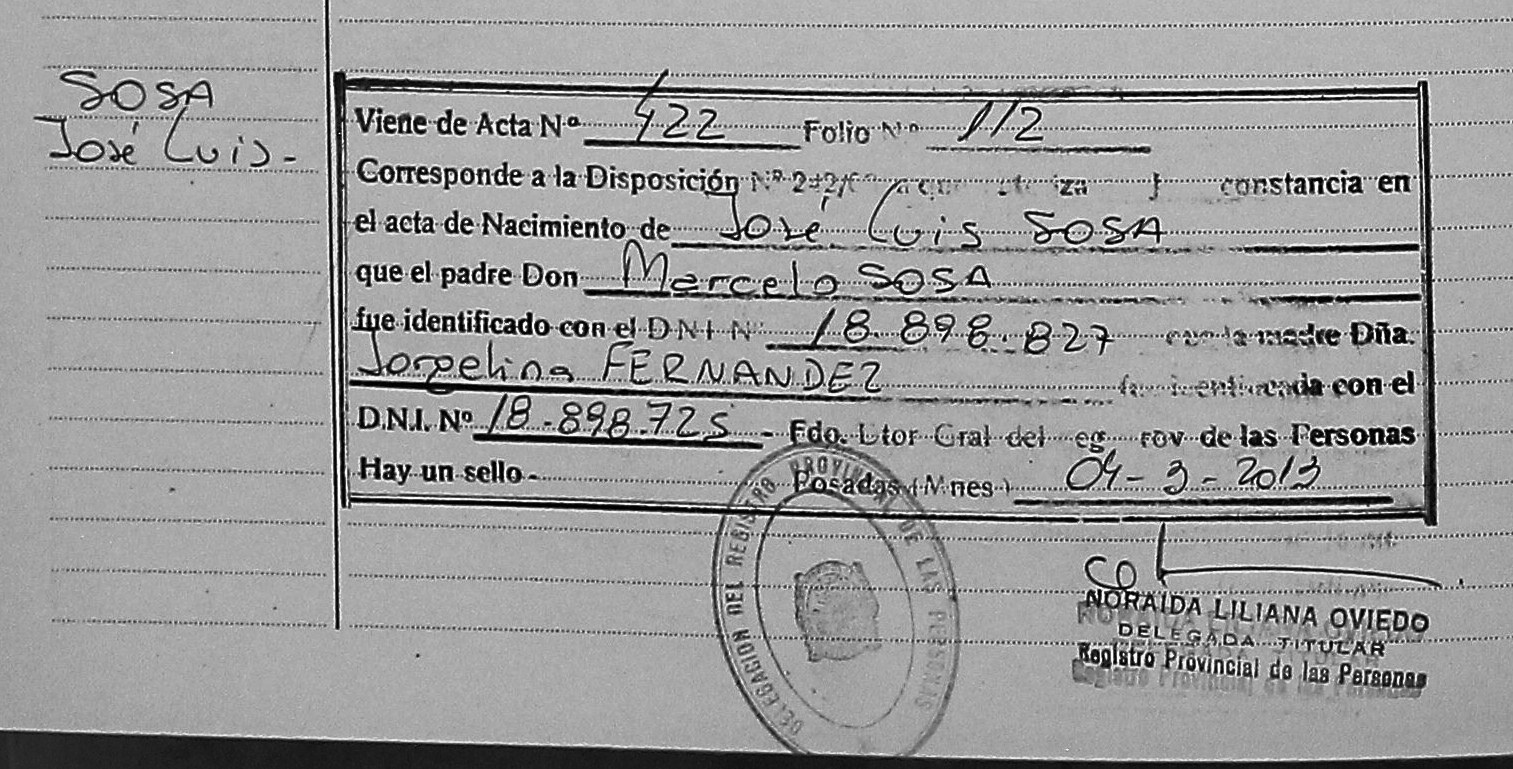 SOSA
José Luis -
Viene de Acta Nº 422 Folio Nº 112
Corresponde a la Disposición Nº constancia en
el acta de Nacimiento de José Luis SOSA
que el padre Don Marcelo SOSA
fue identificado con el D N I Nº 18.898.827 madre Dña.
Jorgelina FERNANDEZ con el
D.N.I. Nº 18.898.725 - Fdo. Gral del de las Personas
Hay un sello - Posadas (Mnes) 04-3-2013
DELEGACION DEL REGISTRO PROVINCIAL DE LAS PERSONAS
NORAIDA LILIANA OVIEDO
DELEGADA TITULAR
Registro Provincial de las Personas